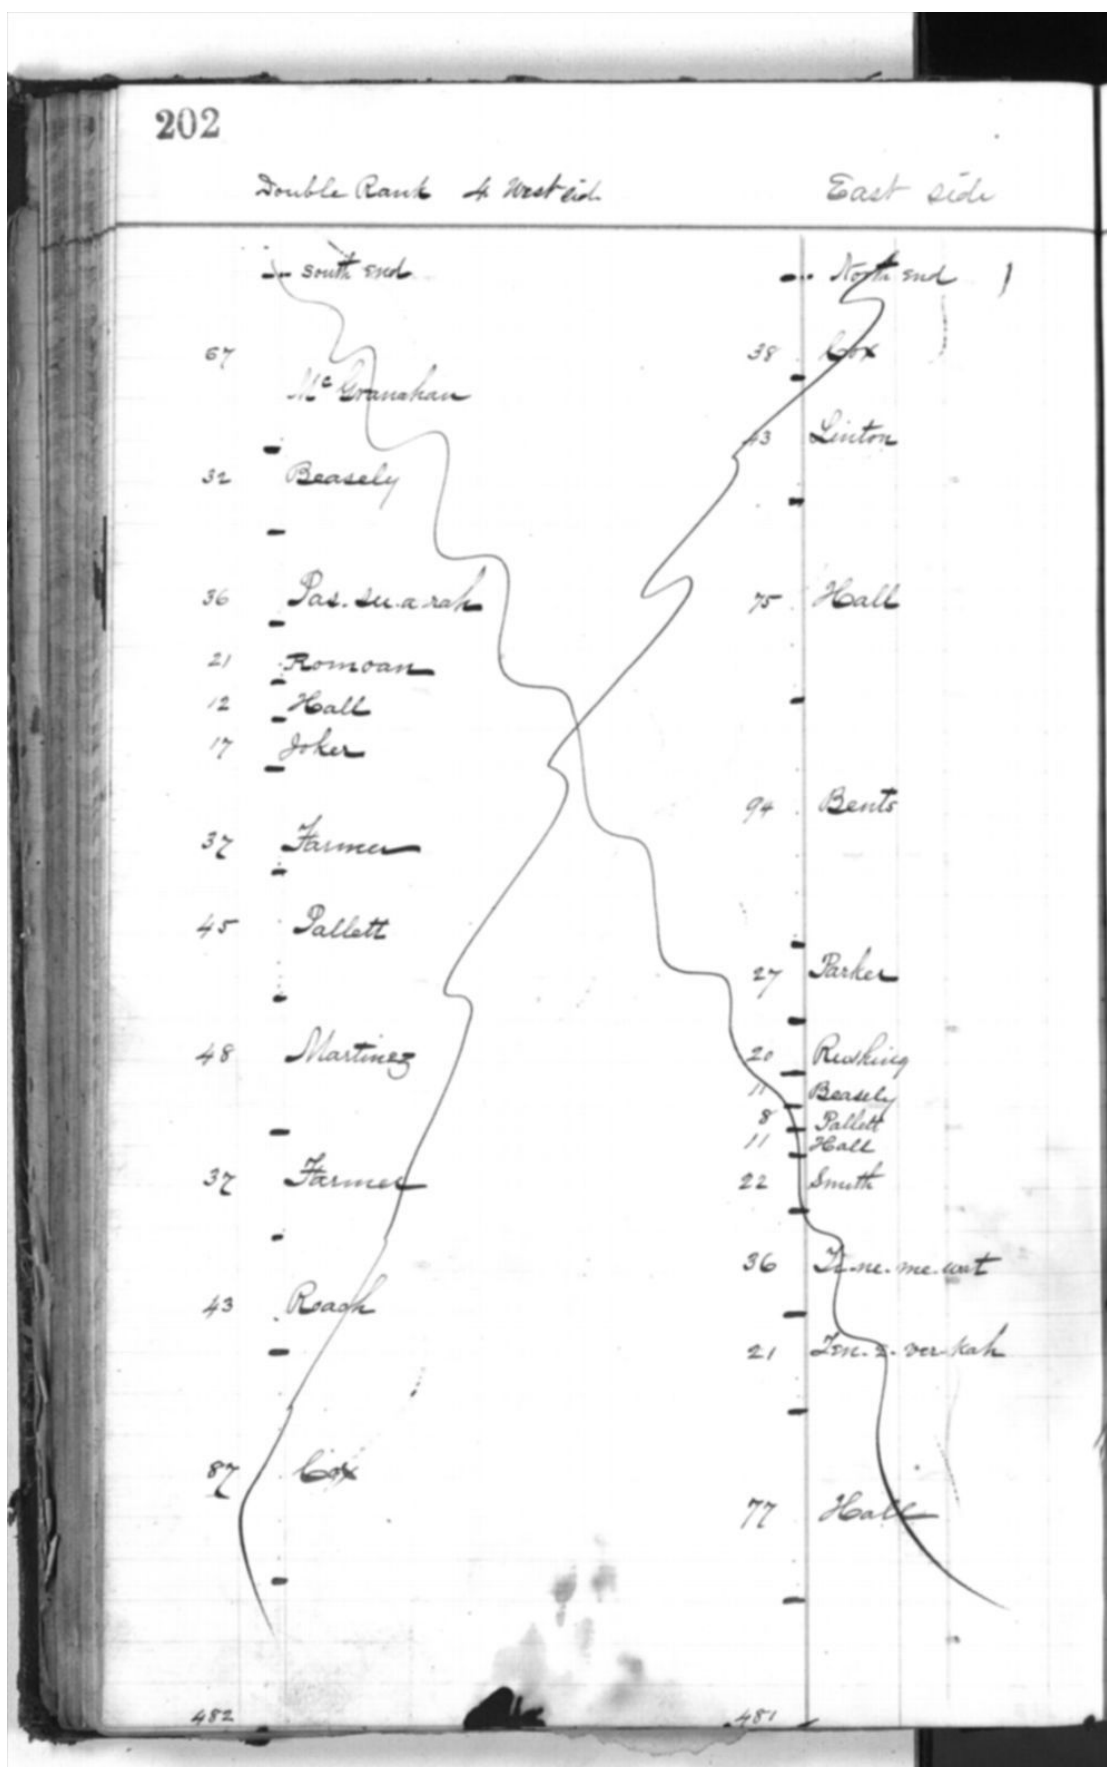 202
Double Rank 4 West side
South end
67
McGranahan
32 Beasely
36 Pas.su.a.rah
21 Romoan
12 Hall
17 Joker
37 Farmer
45 Pallett
48 Martinez
37 Farmer
43 Roach
87 Cox
482
East side
North end
38 Cox
43 Linton
75 Hall
94 Bents
27 Parker
20 Rushing
11 Beasely
8 Pallett
11 Hall
22 Smith
36
21
77 Hall
481